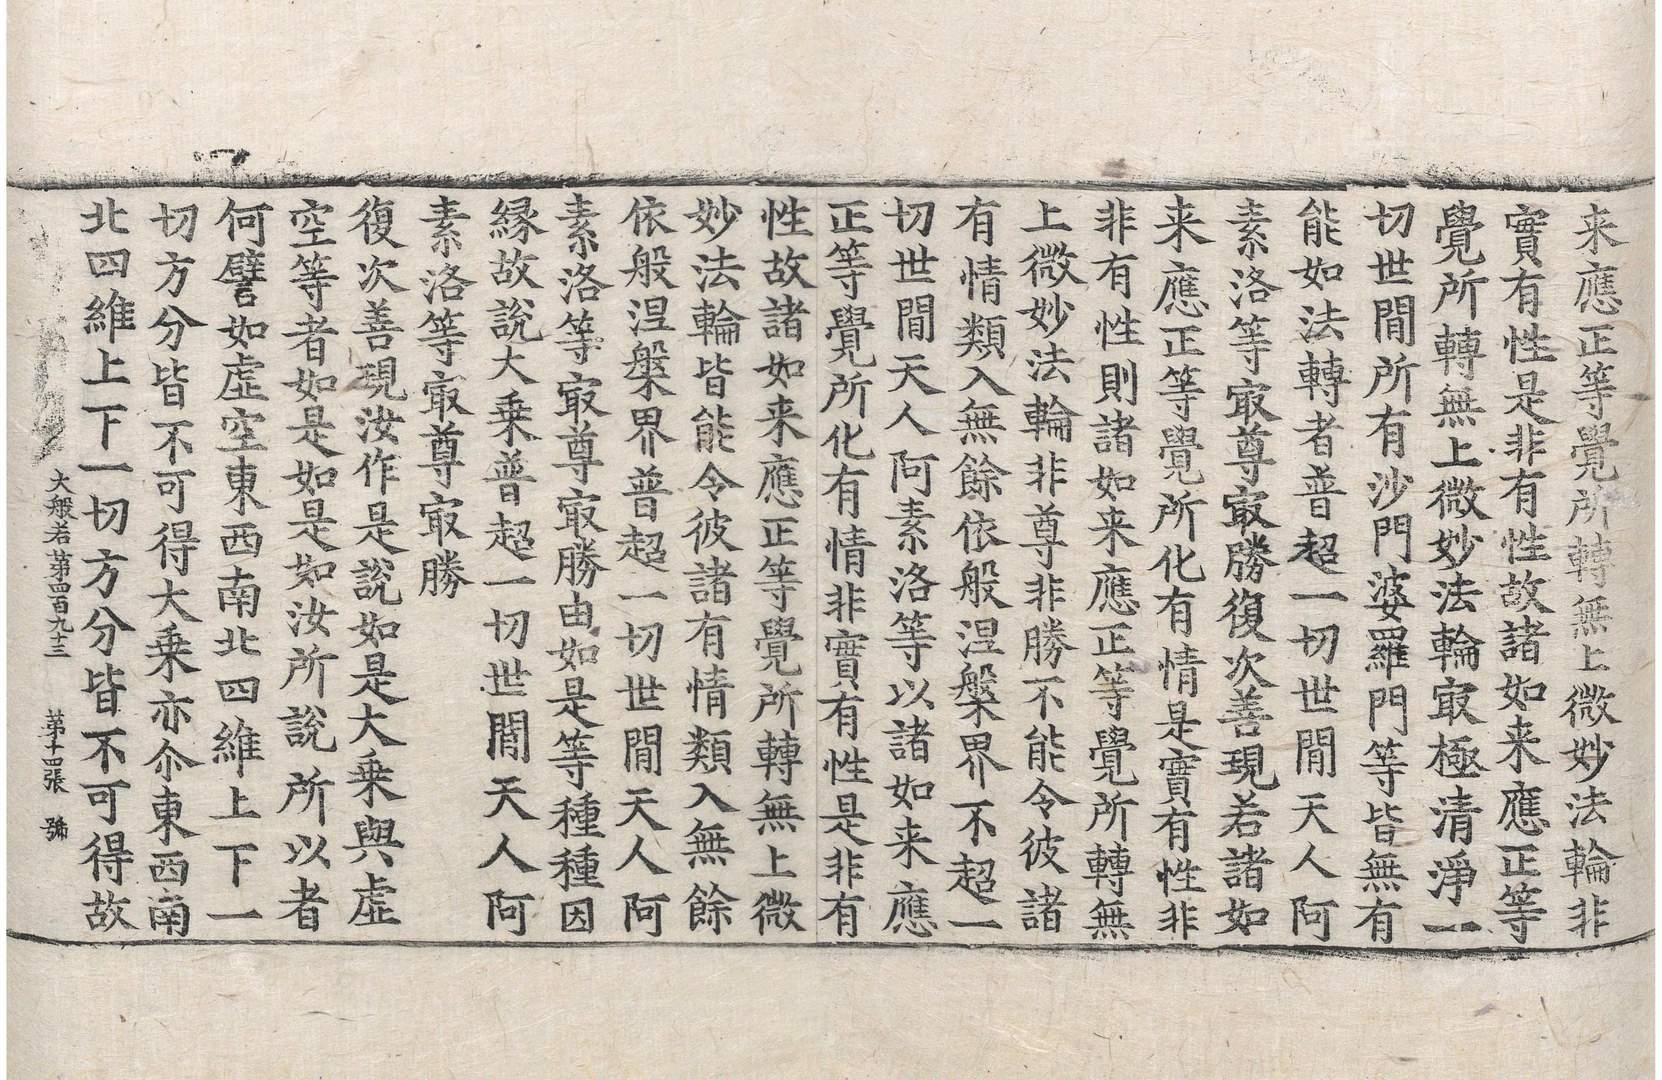 来應正等覺所轉無上微妙法輪非
實有性是非有性故諸如来應正等
覺所轉無上微妙法輪㝡極清淨一
切世閒所有沙門婆羅門等皆無有
能如法轉者普超一切世閒天人阿
素洛等㝡尊㝡勝復次善現若諸如
来應正等覺所化有情是實有性非
非有性則諸如来應正等覺所轉無
上微妙法輪非尊非勝不能令彼諸
有情類入無餘依般涅槃界不超一
切世閒天人阿素洛等以諸如来應
正等覺所化有情非實有性是非有
性故諸如来應正等覺所轉無上微
妙法輪皆能令彼諸有情類入無餘
依般涅槃界普超一切世閒天人阿
素洛等㝡尊㝡勝由如是等種種因
縁故說大乗普超一切世閒天人阿
素洛等㝡尊㝡勝
復次善現汝作是說如是大乗與虛
空等者如是如是如汝所說所以者
何譬如虛空東西南北四維上下一
切方分皆不可得大乗亦尒東西南
北四維上下一切方分皆不可得故
大般若苐四百九十三 苐十四張 號